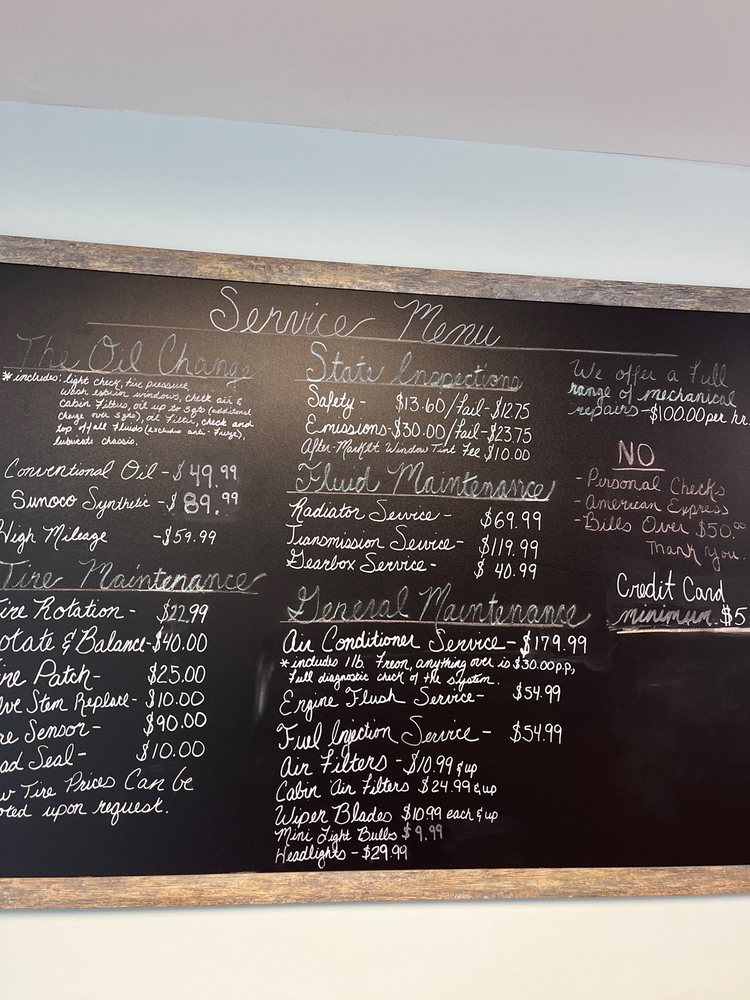 Service Menu
The Oil Change
* includes: light check, tire pressure,
wash exterior windows, check air &
cabin filters, oil up to 5 qts (additional
charge over 5 qts), oil filter, check and
top off all fluids (excludes anti-freeze),
lubricate chassis.
Conventional Oil - $49.99
Sunoco Synthetic - $89.99
High Mileage - $59.99
Tire Maintenance
Tire Rotation - $22.99
otate & Balance - $40.00
ire Patch - $25.00
lve Stem Replace - $10.00
re Sensor - $90.00
ad Seal - $10.00
w Tire Prices Can be
oted upon request.
State Inspections
Safety - $13.60/fail - $12.75
Emissions - $30.00/fail - $23.75
After-Market Window Tint Fee $10.00
Fluid Maintenance
Radiator Service - $69.99
Transmission Service - $119.99
Gearbox Service - $40.99
General Maintenance
Air Conditioner Service - $179.99
* includes 1 lb. Freon, anything over is $30.00 p.p,
full diagnostic check of the system.
Engine Flush Service - $54.99
Fuel Injection Service - $54.99
Air Filters - $10.99 & up
Cabin Air Filters $24.99 & up
Wiper Blades $10.99 each & up
Mini Light Bulbs $9.99
Headlights - $29.99
We offer a full
range of mechanical
repairs - $100.00 per hr.
NO
- Personal Checks
- American Express
- Bills Over $50.00
Thank You.
Credit Card
minimum $5